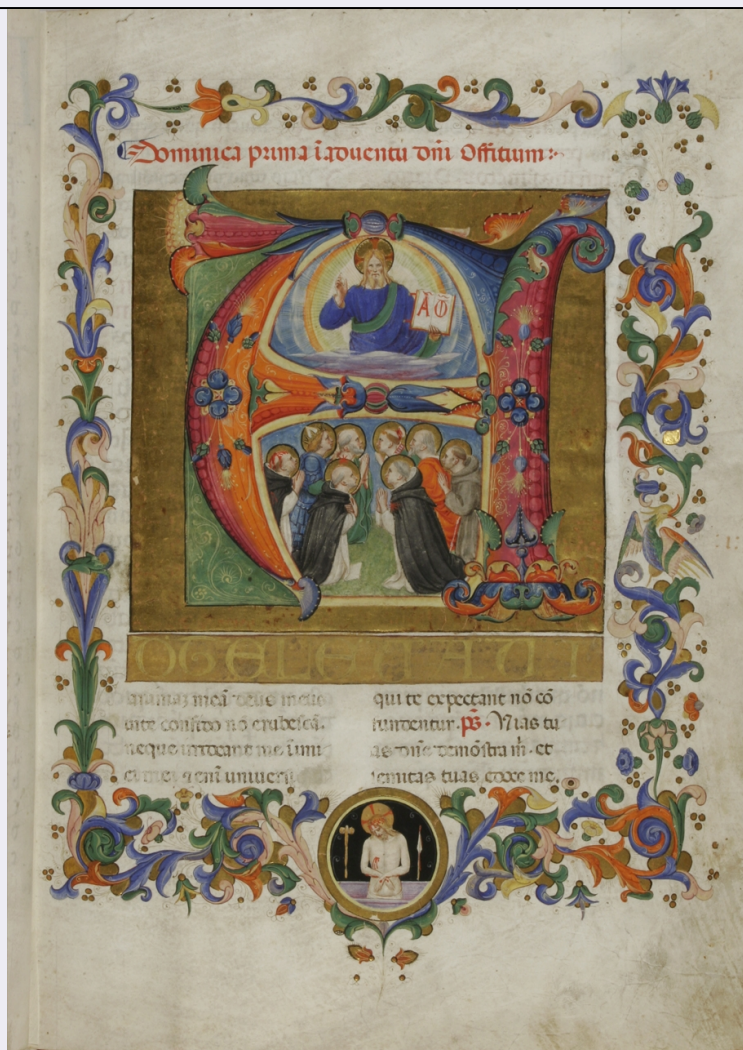 Dominica prima ĩ aduentu dñi Offitium:~
A Ω
A
D TE LEVAVI
animaz meã deus meus
in te confido nõ erubescã.
neque irrideant me inimi
ci mei
uniuersi
qui te expectant nõ cõ
fundentur. ps. Vias tu
as dñe demõstra m̃. et
semitas tuas edoce me.